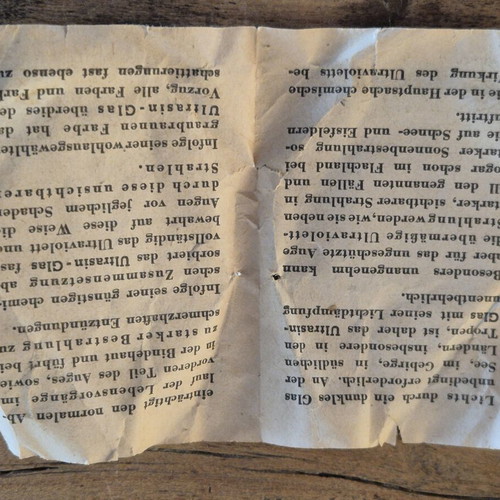 Lichts durch ein dunkles Glas
unbedingt erforderlich. An der
See, im Gebirge, in südlichen
Ländern, insbesondere in den
Tropen, ist daher das Ultrasin-
Glas mit seiner Lichtdämpfung
unentbehrlich.
Besonders unangenehm kann
aber für das ungeschützte Auge
die übermäßige Ultraviolett-
strahlung werden, wie sie neben
starker, sichtbarer Strahlung in
all den genannten Fällen und
sogar schon im Flachland bei
starker Sonnenbestrahlung so-
wie auf Schnee- und Eisfeldern
auftritt.
Die in der Hauptsache chemische
Wirkung des Ultravioletts be-
einträchtigt den normalen Ab-
lauf der Lebensvorgänge im
vorderen Teil des Auges, sowie
in der Bindehaut und führt bei
zu starker Bestrahlung zu
schmerzhaften Entzündungen.
Infolge seiner günstigen chemi-
schen Zusammensetzung ab-
sorbiert das Ultrasin-Glas fast
vollständig das Ultraviolett und
bewahrt auf diese Weise die
Augen vor jeglichem Schaden
durch diese unsichtbaren
Strahlen.
Infolge seiner wohlausgewählten
graubraunen Farbe hat das
Ultrasin-Glas überdies den
Vorzug, alle Farben und Farb-
schattierungen fast ebenso zu